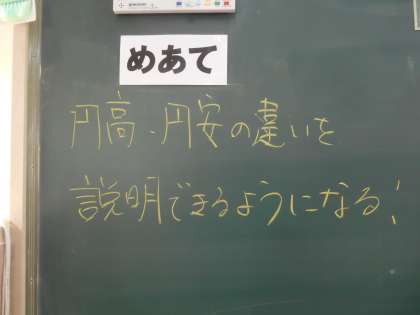 めあて
円高、円安の違いを
説明できるようになる!